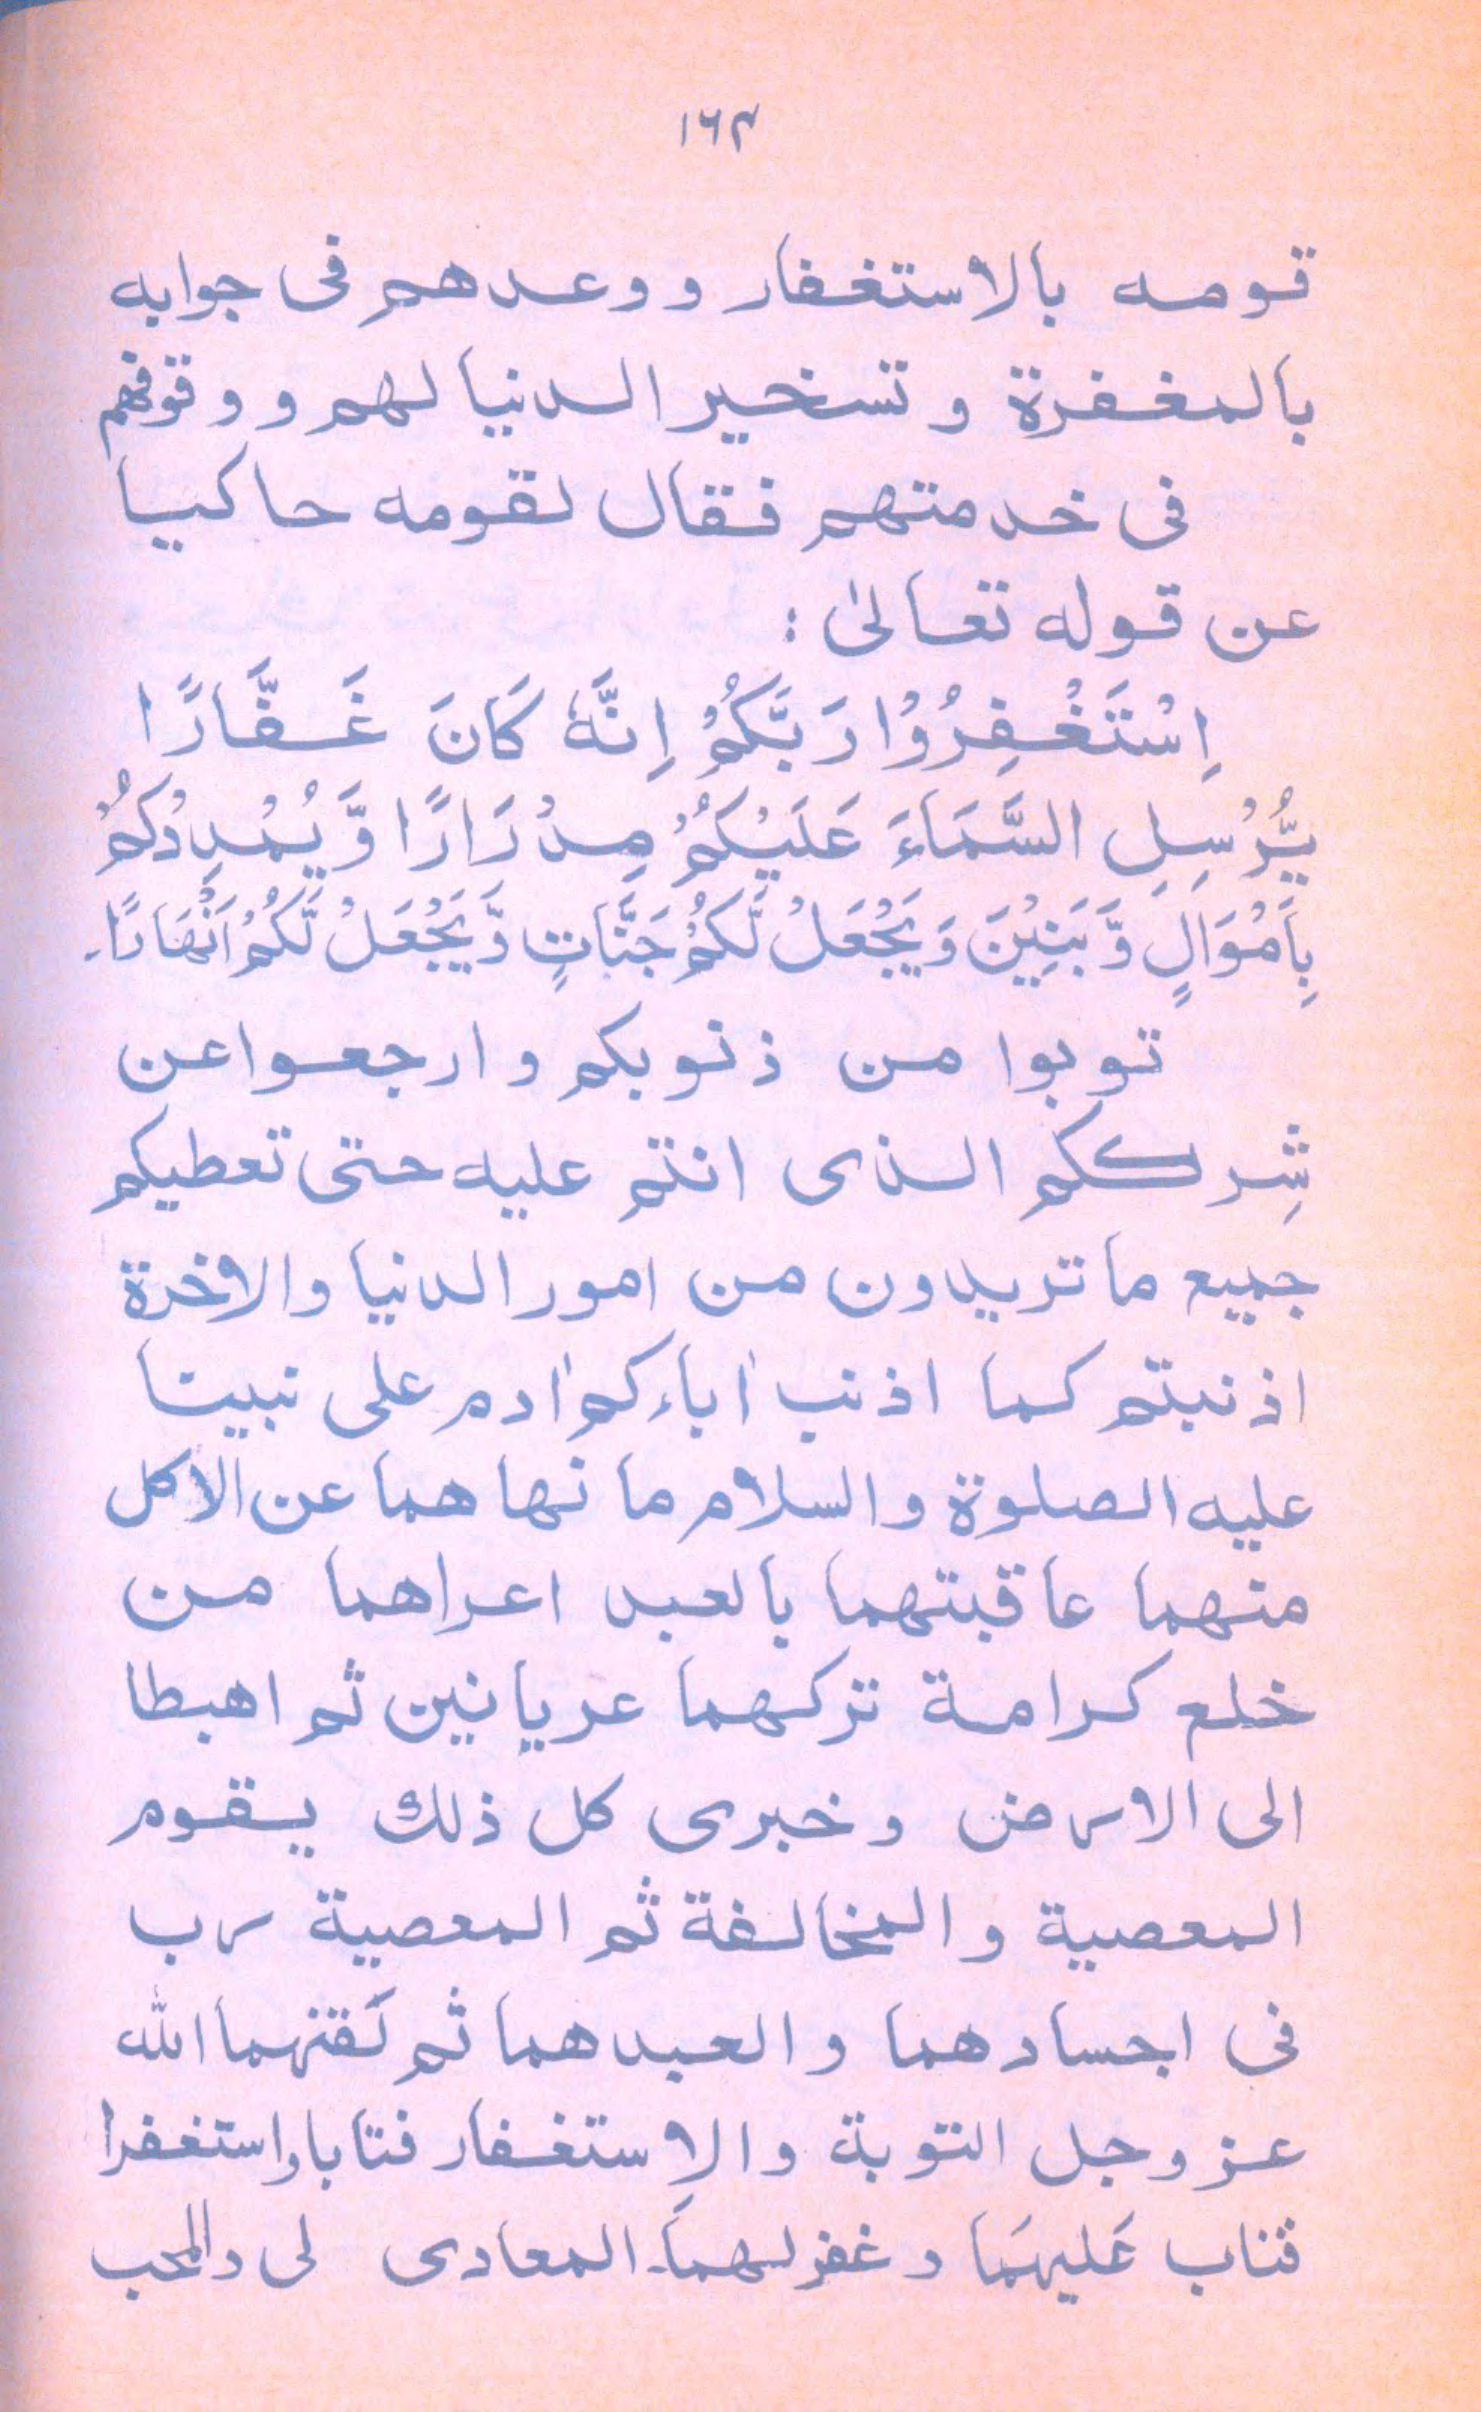 ۱۶۴
قومه بالاستغفار ووعدهم فى جوابه
بالمغفرة وتسخير الدنيا لهم ووقوفهم
فى خدمتهم فقال لقومه حاكيا
عن قوله تعالىٰ :
اِسْتَغْفِرُوْا رَبَّكُمْ اِنَّهٗ كَانَ غَفَّارًا
يُّرْسِلِ السَّمَاءَ عَلَيْكُمْ مِدْرَارًا وَّيُمْدِدْكُمْ
بِاَمْوَالٍ وَّبَنِيْنَ وَيَجْعَلْ لَّكُمْ جَنّٰاتٍ وَّيَجْعَلْ لَّكُمْ اَنْهَارًا۔
توبوا من ذنوبكم وارجعوا عن
شِرككم الذى انتم عليه حتى تعطيكم
جميع ما تريدون من امور الدنيا والاخرة
اذنبتم كما اذنب اٰباءكم اٰدم على نبينا
عليه الصلوة والسلام ما نهاهما عن الاكل
منهما عاقبتهما بالعبد اعراهما من
خلع كرامة تركهما عريانين ثم اهبطا
الى الارض وخبرى كل ذلك يقوم
المعصية والمخالفة ثم المعصية رب
فى اجسادهما والعبدهما ثم لَقنهما الله
عز وجل التوبة والاِستغفار فتابا واستغفرا
فتاب عَليهَما وغفر لهمَا۔ المعادى لى والمحب